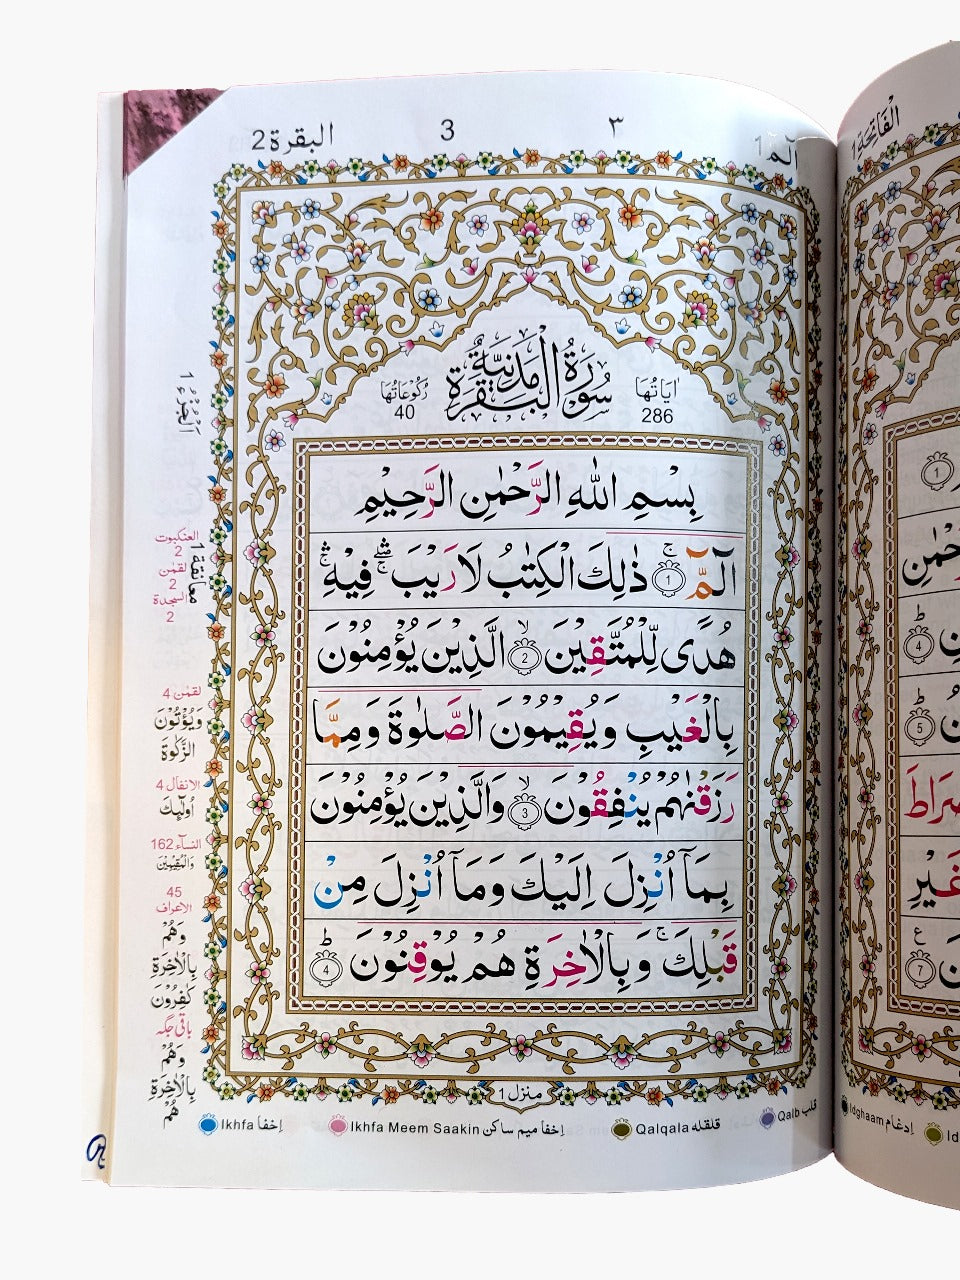 البقرة 2
3
٣
الٓمّٓ 1
سُوْرَةُ الْبَقَرَةِ مَدَنِيَّةٌ
اٰيَاتُهَا
286
رُكُوْعَاتُهَا
40
بِسْمِ اللّٰهِ الرَّحْمٰنِ الرَّحِيْمِ
الٓمّٓ ۚ ﴿1﴾ ذٰلِكَ الْكِتٰبُ لَا رَيْبَ ۛۚ فِيْهِ ۛۚ
هُدًى لِّلْمُتَّقِيْنَ ۙ ﴿2﴾ الَّذِيْنَ يُؤْمِنُوْنَ
بِالْغَيْبِ وَيُقِيْمُوْنَ الصَّلٰوةَ وَمِمَّا
رَزَقْنٰهُمْ يُنْفِقُوْنَ ۙ ﴿3﴾ وَالَّذِيْنَ يُؤْمِنُوْنَ
بِمَآ اُنْزِلَ اِلَيْكَ وَمَآ اُنْزِلَ مِنْ
قَبْلِكَ ۚ وَبِالْاٰخِرَةِ هُمْ يُوْقِنُوْنَ ؕ ﴿4﴾
منزل 1
اَلْجُزْءُ 1
معانقة 1
العنكبوت
2
لقمٰن
2
السجدة
2
لقمٰن 4
وَيُؤْتُوْنَ
الزَّكٰوةَ
الانفال 4
اُولٰٓئِكَ
النسآء 162
وَالْمُقِيْمِيْنَ
45
الاعراف
وَهُمْ
بِالْاٰخِرَةِ
كٰفِرُوْنَ
باقى جگہ
وَهُمْ
بِالْاٰخِرَةِ
هُمْ
Ikhfa اِخفا
Ikhfa Meem Saakin اِخفا میم ساكن
Qalqala قلقله
Qalb قلب
اَلْفَاتِحَة 1
1
4
5
صِرَاطَ
غَيْرِ
7
Idghaam اِدغام